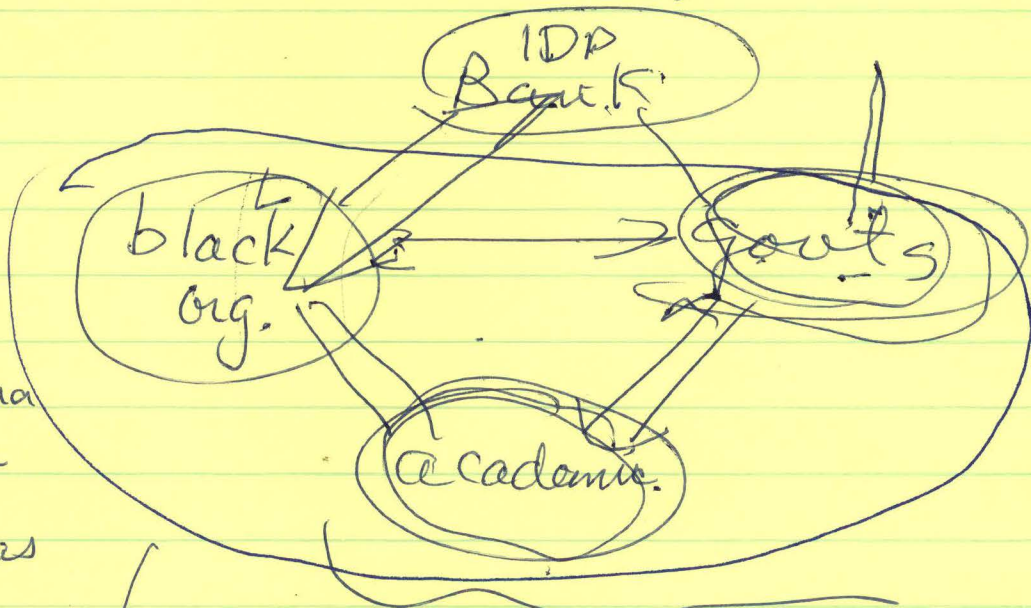 IDP
Bank
black
org.
govt's
academic.